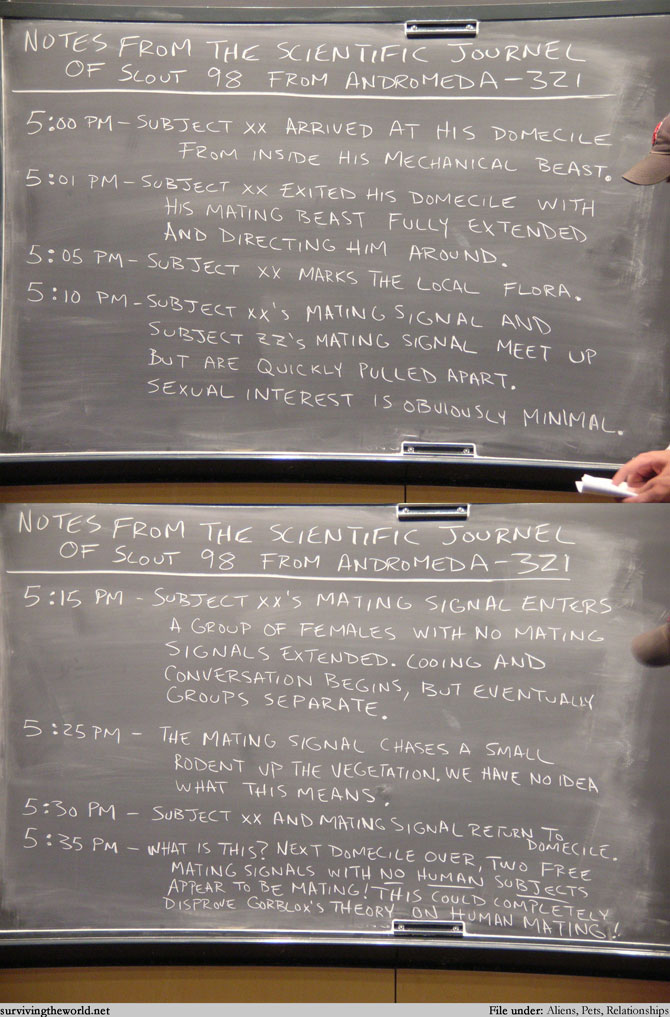 NOTES FROM THE SCIENTIFIC JOURNEL
OF SCOUT 98 FROM ANDROMEDA-321
5:00 PM - SUBJECT XX ARRIVED AT HIS DOMECILE
FROM INSIDE HIS MECHANICAL BEAST.
5:01 PM - SUBJECT XX EXITED HIS DOMECILE WITH
HIS MATING BEAST FULLY EXTENDED
AND DIRECTING HIM AROUND.
5:05 PM - SUBJECT XX MARKS THE LOCAL FLORA.
5:10 PM - SUBJECT XX'S MATING SIGNAL AND
SUBJECT ZZ'S MATING SIGNAL MEET UP
BUT ARE QUICKLY PULLED APART.
SEXUAL INTEREST IS OBVIOUSLY MINIMAL.
NOTES FROM THE SCIENTIFIC JOURNEL
OF SCOUT 98 FROM ANDROMEDA-321
5:15 PM - SUBJECT XX'S MATING SIGNAL ENTERS
A GROUP OF FEMALES WITH NO MATING
SIGNALS EXTENDED. COOING AND
CONVERSATION BEGINS, BUT EVENTUALLY
GROUPS SEPARATE.
5:25 PM - THE MATING SIGNAL CHASES A SMALL
RODENT UP THE VEGETATION. WE HAVE NO IDEA
WHAT THIS MEANS.
5:30 PM - SUBJECT XX AND MATING SIGNAL RETURN TO
DOMECILE.
5:35 PM - WHAT IS THIS? NEXT DOMECILE OVER, TWO FREE
MATING SIGNALS WITH NO HUMAN SUBJECTS
APPEAR TO BE MATING! THIS COULD COMPLETELY
DISPROVE GORBLOX'S THEORY ON HUMAN MATING!
survivingtheworld.net
File under: Aliens, Pets, Relationships